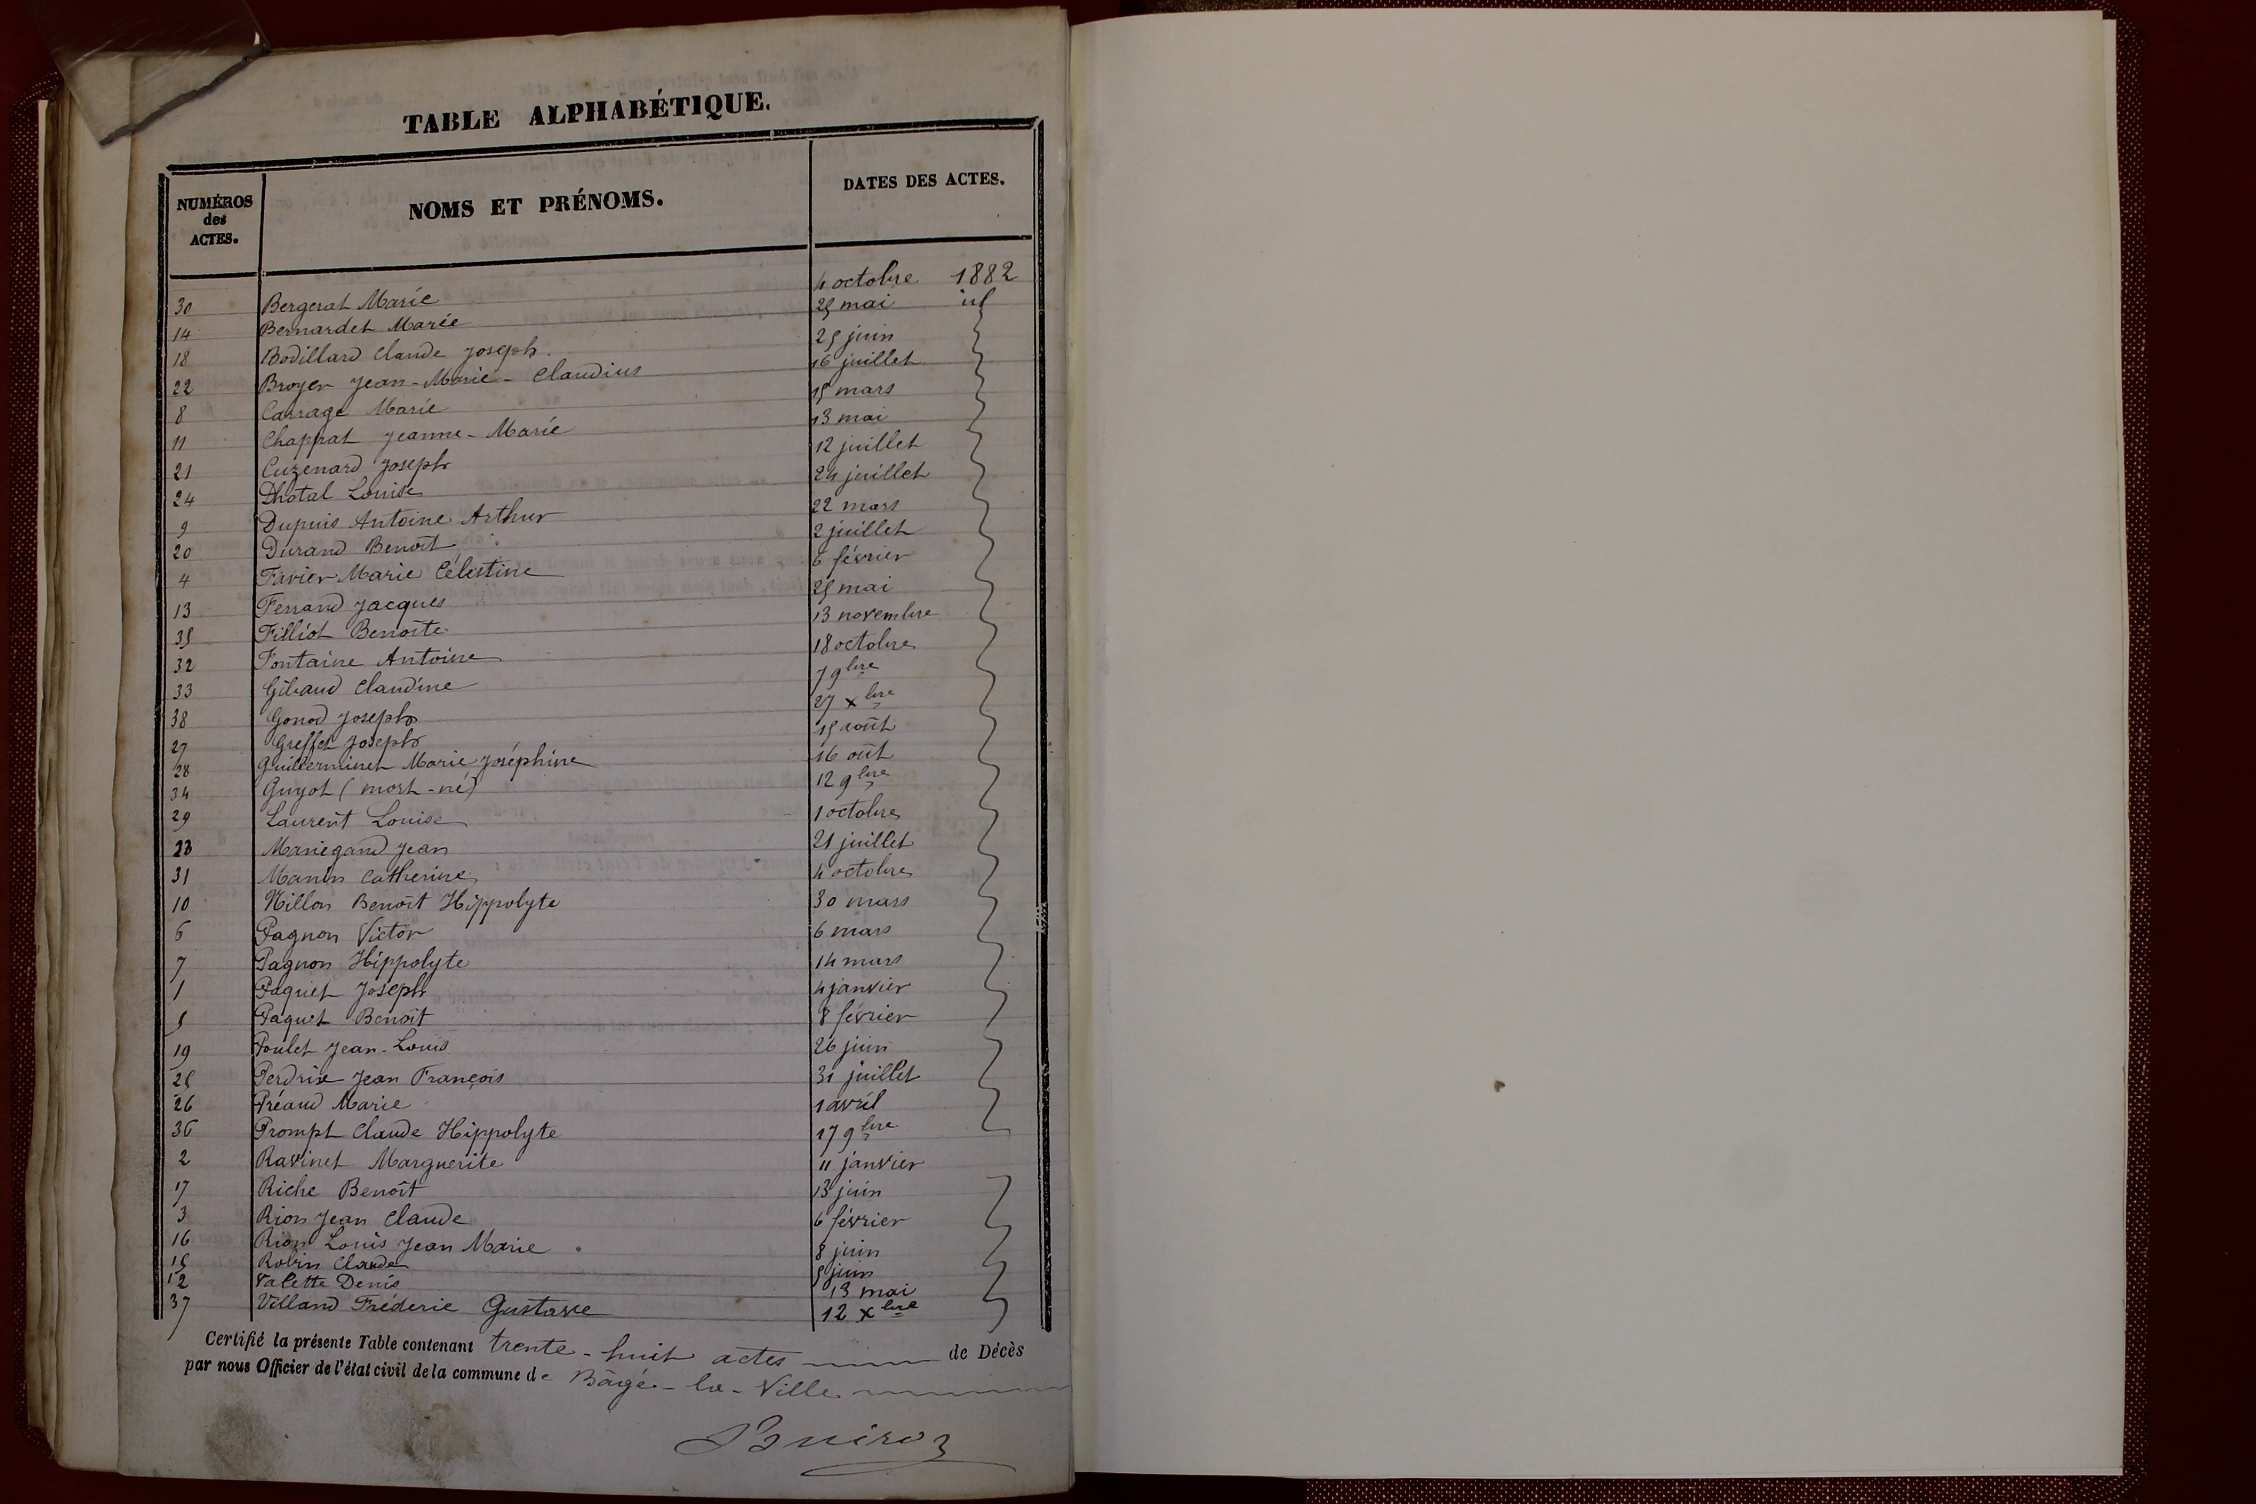 TABLE ALPHABÉTIQUE.
NUMÉROS des ACTES. NOMS ET PRÉNOMS. DATES DES ACTES.
30 Bergerat Marie 4 octobre 1882
14 Bernardet Marie 25 mai id
18 Bodillard Claude Joseph 25 juin
22 Broyer Jean-Marie-Claudius 16 juillet
8 Carrage Marie 15 mars
11 Chapprat Jeanne-Marie 13 mai
21 Cuzenard Joseph 12 juillet
24 Dhotal Louise 24 juillet
9 Dupuis Antoine Arthur 22 mars
20 Durand Benoît 2 juillet
4 Favier Marie Célestine 6 février
13 Ferrand Jacques 25 mai
35 Filliot Benoîte 13 novembre
32 Fontaine Antoine 18 octobre
33 Gibaud Claudine 7 9bre
38 Gonod Joseph 27 xbre
27 Greffet Joseph 15 août
28 Guillerminet Marie Joséphine 16 oût
34 Guyot (mort-né) 12 9bre
29 Laurent Louise 1 octobre
23 Mariegand Jean 21 juillet
31 Manin Catherine 4 octobre
10 Millon Benoît Hippolyte 30 mars
6 Pagnon Victor 6 mars
7 Pagnon Hippolyte 14 mars
1 Paquet Joseph 4 janvier
5 Paquet Benoît 8 février
19 Poulet Jean-Louis 26 juin
25 Perdrix Jean François 31 juillet
26 Préaud Marie 1 avril
36 Prompt Claude Hippolyte 17 9bre
2 Ravinet Marguerite 11 janvier
17 Riche Benoît 13 juin
3 Rion Jean Claude 6 février
16 Rion Louis Jean Marie 8 juin
15 Robin Claude 5 juin
12 Valette Denis 13 mai
37 Villand Fréderic Gustave 12 xbre
Certifié la présente Table contenant trente-huit actes de Décès
par nous Officier de l'état civil de la commune de Bâgé-la-Ville